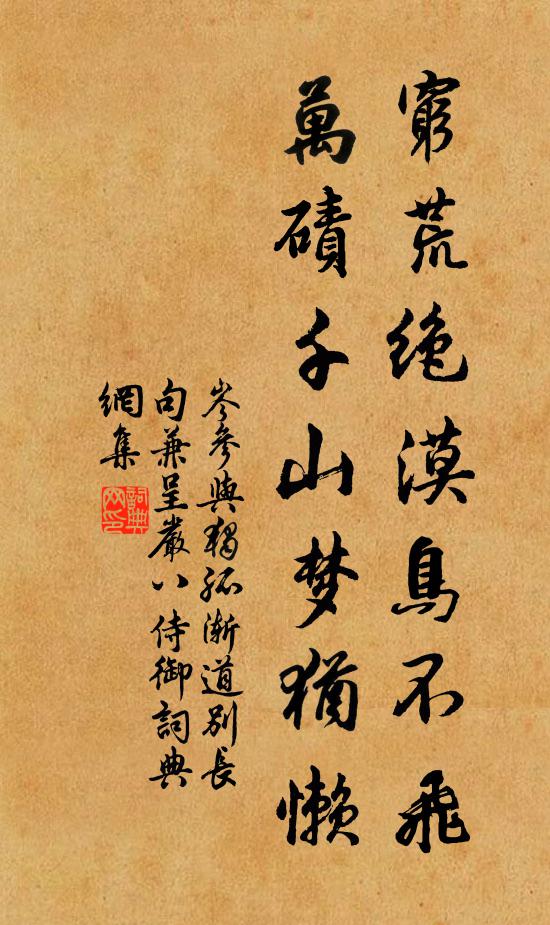 窮荒絶漠鳥不飛
萬磧千山梦猶懶
岑參與獨孤漸道別長
句兼呈嚴八侍御詞典
網集
詞典
网印